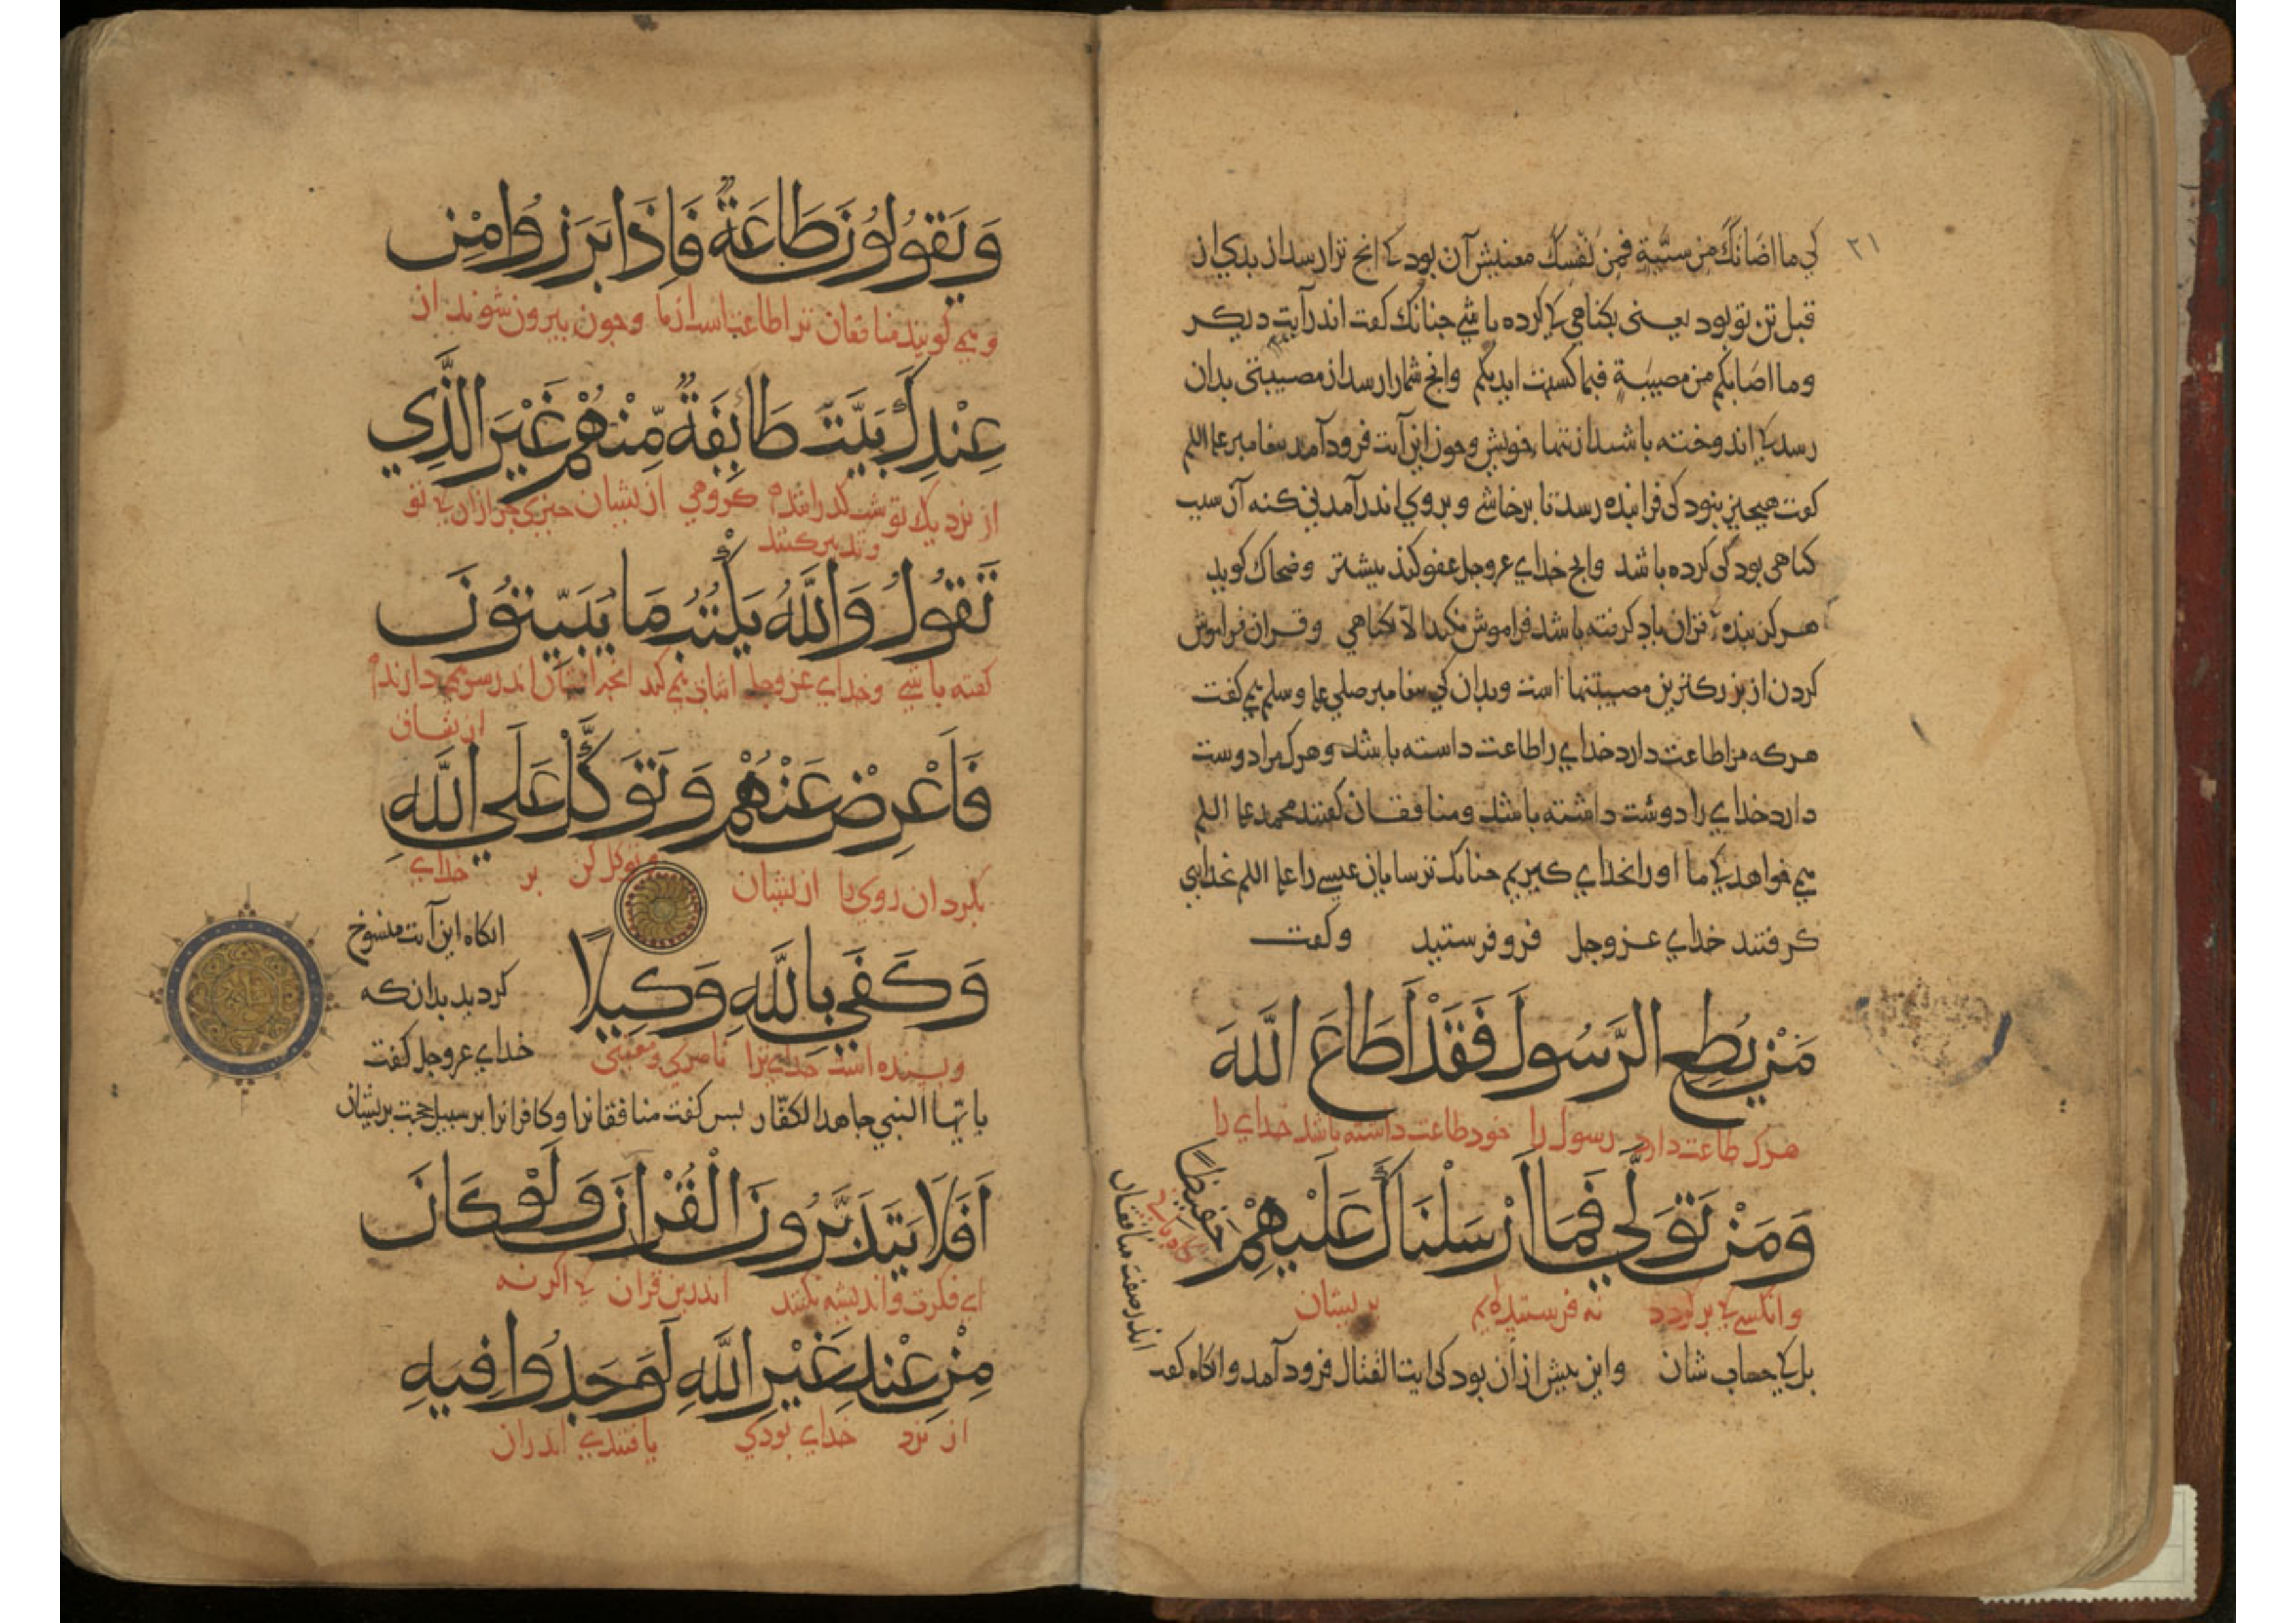 ٢١
کی ما اصابك من سیّئةٍ فمن نفسك معنیش آن بود کانچ ترا رسد از بدی از
قبل تن تو بود یعنی بکناهی کی کرده باشی چنانك کفت اندر آیت دیکر
وما اصابکم من مصیبةٍ فبما کسبت ایدیکم وانچ شما را رسد از مصیبتی بدان
رسد کی اندوخته باشید از تنهاء خویش وچون این آیت فرود آمد بیغامبر علیه السلم
کفت هیچیز نبود کی فرا بنده رسد تا برخاشی و بروی اندر آمدنی کنه آن سبب
کناهی بود کی کرده باشد وانچ خدای عزوجل عفو کند بیشتر وضحاك کوید
هر کن بنده قران یاد کرفته باشد فراموش نکند الّا بکناهی وقران فراموش
کردن از بزرکترین مصیبتها است وبدان کی بیغامبر صلی علیه وسلم همی کفت
هرکه مرا طاعت دارد خدای را طاعت داشته باشد وهرك مرا دوست
دارد خدای را دوست داشته باشد ومنافقان کفتند محمد علیه السلم
همی خواهد کی ما او را بخدای کیریم چنانك ترسایان عیسی را علیه السلم بخدایی
کرفتند خدای عزوجل فرو فرستید وکفت
مَنْ يُطِعِ الرَّسُولَ فَقَدْ اَطَاعَ اللَّهَ
هرك طاعت دارد رسول را خود طاعت داشته باشد خدای را
وَمَنْ تَوَلَّي فَمَا اَرْسَلْنَاكَ عَلَيْهِمْ حَفِيظًا
وانکسی کی برکردد نه فرستیدیم بریشان نکاه بانی
اندر صفت منافقان
بل کی حساب شان واین بیش از آن بود کی آیت القتال فرود آمد وانکاه کفت
وَيَقُولُونَ طَاعَةٌ فَاِذَا بَرَزُوا مِنْ
وهمی کویند منافقان ترا طاعتست از ما وچون بیرون شوند از
عِنْدِكَ بَيَّتَ طَائِفَةٌ مِّنْهُمْ غَيْرَ الَّذِي
از نزدیك تو شب کذراننده کروهی از یشان چیزی جز از آن کی تو
وتدبیر کنند
تَقُولُ وَاللَّهُ يَكْتُبُ مَا يُبَيِّتُونَ
کفته باشی وخدای عزوجل اثبات همی کند انچ ایشان اندر سر همی دارند
از یشان
فَاَعْرِضْ عَنْهُمْ وَتَوَكَّلْ عَلَي اللَّهِ
بکردان روی را از یشان وتوکل کن بر خدای
وَكَفَي بِاللَّهِ وَكِيلًا
وبسنده است خدای ترا ناصری ومعینی
انکاه این آیت منسوخ
کردید بدانکه
خدای عزوجل کفت
یا ایّها النبی جاهد الکفّار بس کفت منافقانرا وکافرانرا بر سبیل حجت بریشان
اَفَلَا يَتَدَبَّرُونَ الْقُرْاٰنَ وَلَوْ كَانَ
ای فکرت واندیشه نکنند اندرین قران کی اکر نه
مِنْ عِنْدِ غَيْرِ اللَّهِ لَوَجَدُوا فِيهِ
از نزد خدای بودی یافتندی اندران